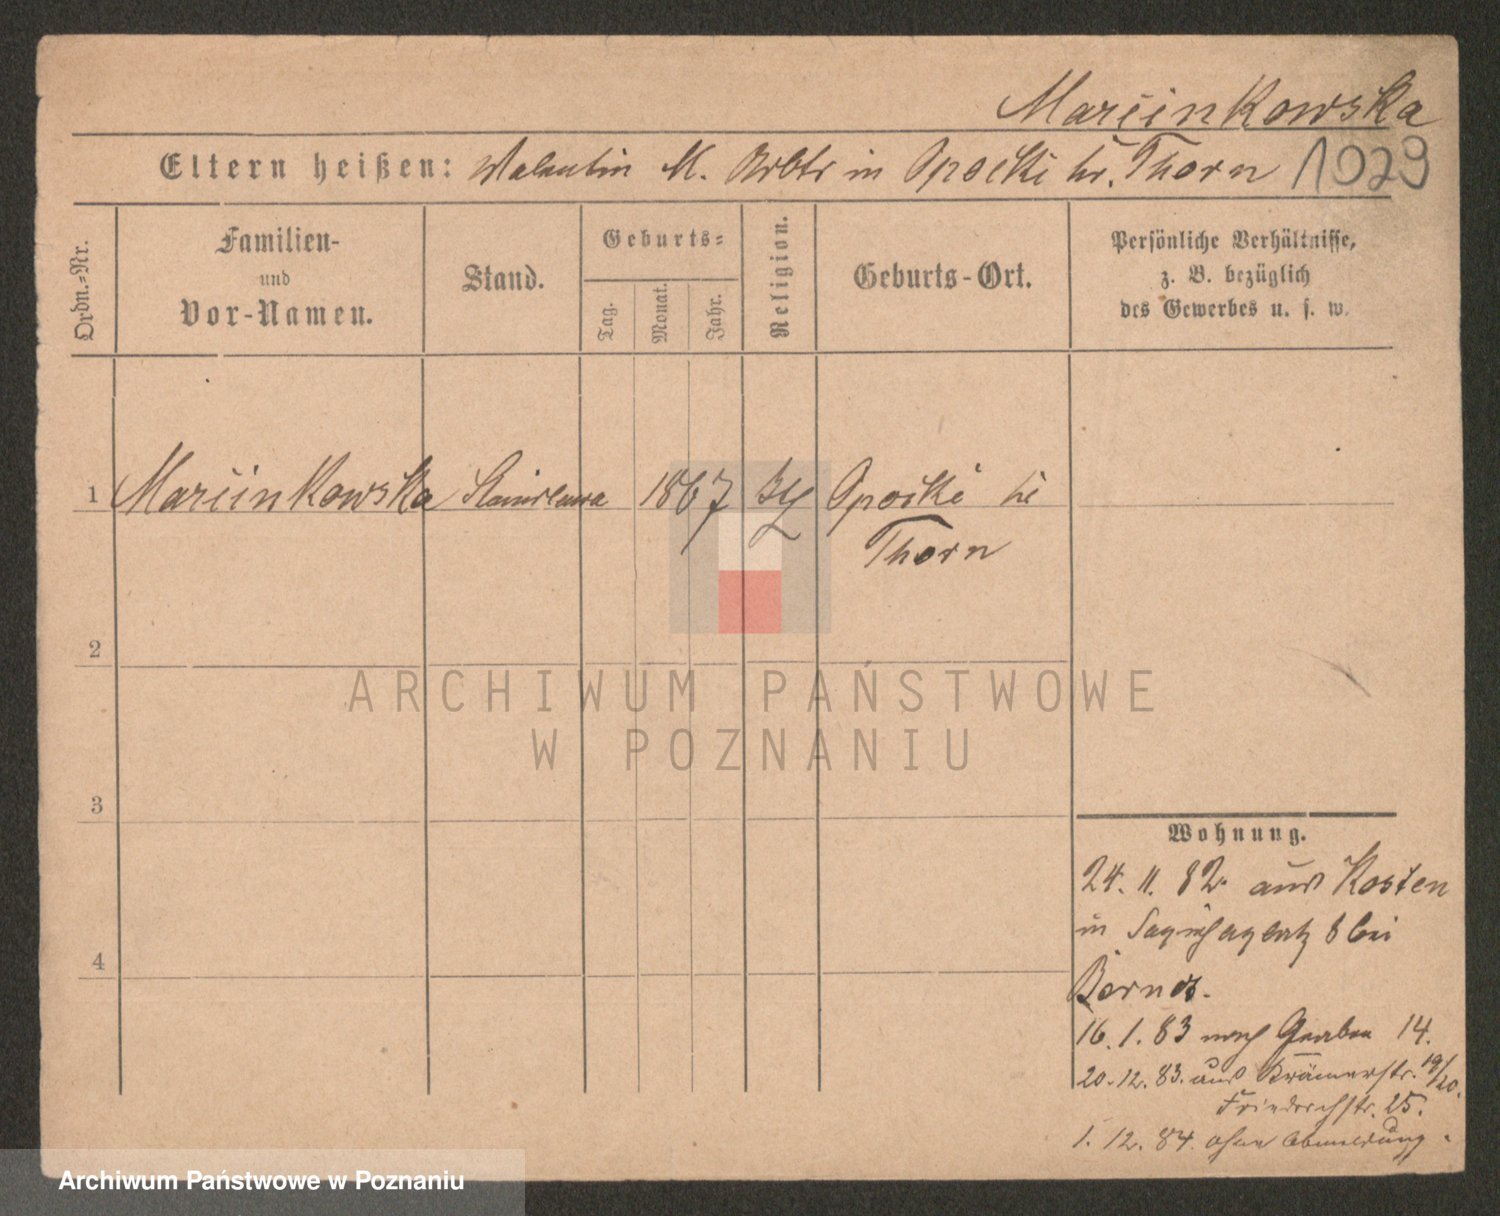 Marcinkowska
Eltern heißen: Valentin M. Arbtr in Opočki kr. Thorn 1029
Ordn.-Nr.
Familien-
und
Vor-Namen.
Stand.
Geburts-
Tag.
Monat.
Jahr.
Religion.
Geburts-Ort.
Persönliche Verhältnisse,
z. B. bezüglich
des Gewerbes u. s. w.
1 Marcinkowska Stanislawa 1867 Opočki
Thorn
2
3
4
ARCHIWUM PAŃSTWOWE
W POZNANIU
Wohnung.
24. 11. 82. aus Kosten
in Sapiehaplatz 8 bei
16. 1. 83 nach Graben 14.
20. 12. 83. aus Krämerstr. 19/20.
Friedrichstr. 25.
1. 12. 84. ohne Abmeldung.
Archiwum Państwowe w Poznaniu